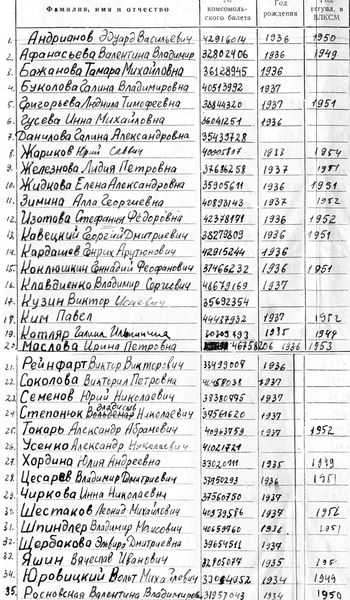 Фамилия, имя и отчество комсомольского билета Год рождения Год вступл. в ВЛКСМ
1. Андрианов Эдуард Васильевич 42916014 1936 1950
2. Афанасьева Валентина Владимир 32802406 1936 1949
3. Бажанова Тамара Михайловна 36128945 1936
4. Буколова Галина Владимировна 40513992 1937
5. Григорьева Людмила Тимофеевна 38844320 1937 1951
6. Гусева Инна Михайловна 36041251 1936
7. Данилова Галина Александровна 35439728
8. Жариков Юрий 1933 1954
9. Железнова Лидия Петровна 37686258 1937 1951
10. Жидкова Елена Александровна 35905611 1936 1951
11. Зимина Алла Георгиевна 40893143 1937 1952
12. Изотова Стефания Федоровна 42378171 1936 1952
13. Кавецкий Георгий Дмитриевич 38279809 1936 1951
14. Кардашев Генрик Арутюнович 42915244 1936
15. Коклюшкин Геннадий Феофанович 37466232 1936 1951
16. Клавдиенко Владимир Сергеевич 48679169 1937
17. Кузин Виктор 35692354
18. Ким Павел 44437932 1937 1952
19. Котляр Галина Ильинична 1935 1949
20. Маслова Ирина Петровна 46758206 1936 1953
21. Рейнфарт Виктор Викторович 33499007 1936
22. Соколова Виктория Петровна 1937
23. Семенов Юрий Николаевич 38380775 1937
24. Степанюк Владислав Николаевич 39561620 1937
25. Токарь Александр Абрамович 40963759 1937 1952
26. Усенко Александр Николаевич 41021721
27. Хордина Юлия Андреевна 33020111 1935 1949
28. Цесарев Владимир Дмитриевич 37950293 1936 1951
29. Чиркова Инна Николаевна 37560750 1937
30. Шестаков Леонид Михайлович 40939586 1937 1952
31. Шпиндлер Владимир Максович 40659760 1936 1951
32. Щербакова Эльвира Дмитриевна 39654511 1937
33. Яшин Вячеслав Иванович 32905077 1935
34. Юровицкий Вольт Михайлович 1934 1949
35. Росновская Валентина Владимиров. 31957043 1934 1950